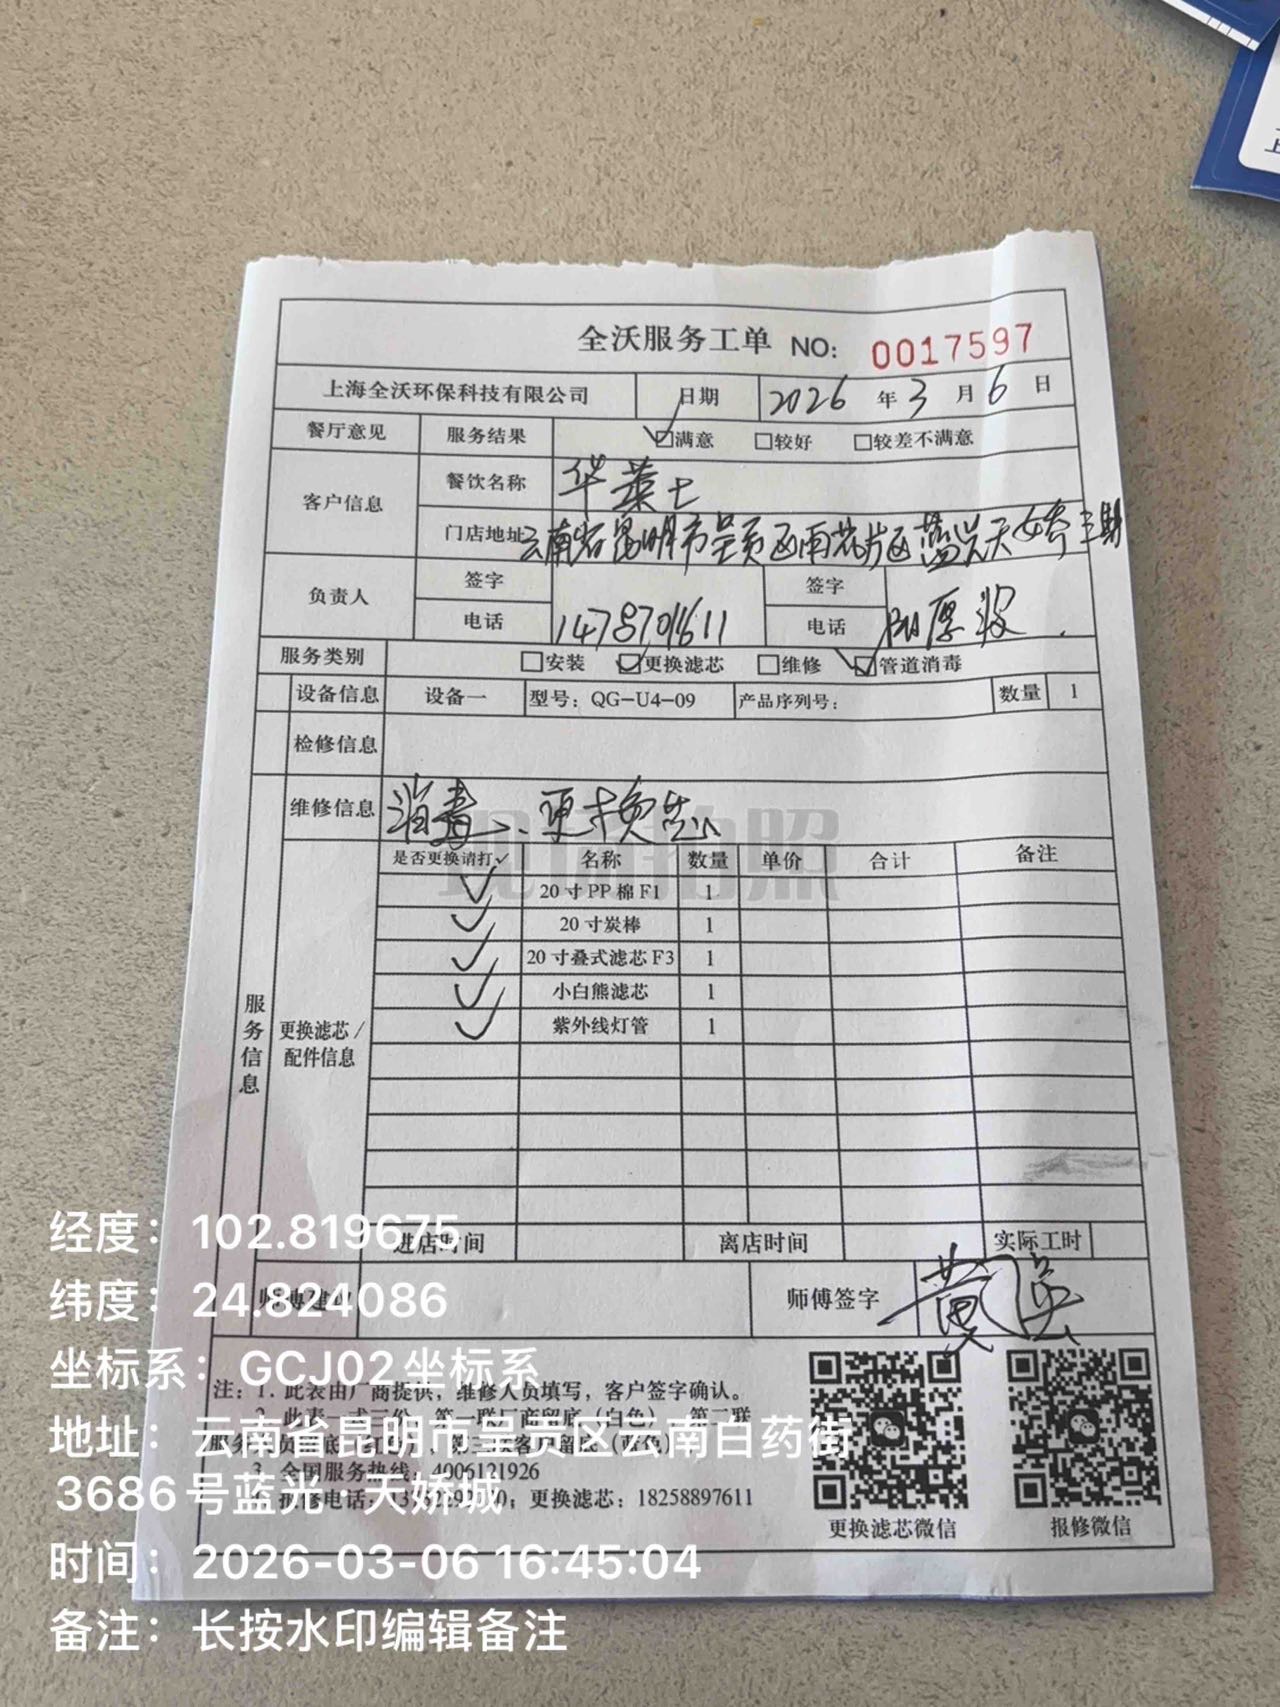 全沃服务工单 NO: 0017597
上海全沃环保科技有限公司 日期 2026 年 3 月 6 日
餐厅意见 服务结果 ☑满意 □较好 □较差不满意
客户信息 餐饮名称 华莱士
门店地址 云南省昆明市呈贡区雨花片区蓝光天娇三期
负责人 签字 签字
电话 1478701611 电话 厚波
服务类别 □安装 ☑更换滤芯 □维修 ☑管道消毒
设备信息 设备一 型号: QG-U4-09 产品序列号: 数量 1
检修信息
维修信息 消毒、更换芯
现场拍照
服务信息
更换滤芯/配件信息
是否更换请打✓ 名称 数量 单价 合计 备注
✓ 20寸PP棉F1 1
✓ 20寸炭棒 1
✓ 20寸叠式滤芯F3 1
✓ 小白熊滤芯 1
✓ 紫外线灯管 1
进店时间 离店时间 实际工时
师傅签字 黄
注: 1. 此表由厂商提供，维修人员填写，客户签字确认。
2. 此表一式三份，第一联厂商留底（白色），第二联
3. 全国服务热线: 4006121926
报修电话: 更换滤芯: 18258897611
更换滤芯微信 报修微信
经度: 102.819675
纬度: 24.824086
坐标系: GCJ02坐标系
地址: 云南省昆明市呈贡区云南白药街
3686号蓝光·天娇城
时间: 2026-03-06 16:45:04
备注: 长按水印编辑备注